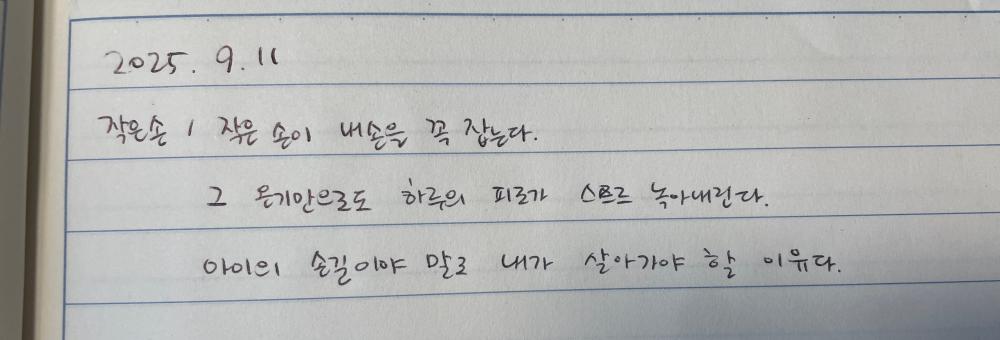 2025. 9. 11
작은손 / 작은 손이 내손을 꼭 잡는다.
그 온기만으로도 하루의 피로가 스르르 녹아내린다.
아이의 손길이야 말로 내가 살아가야 할 이유다.